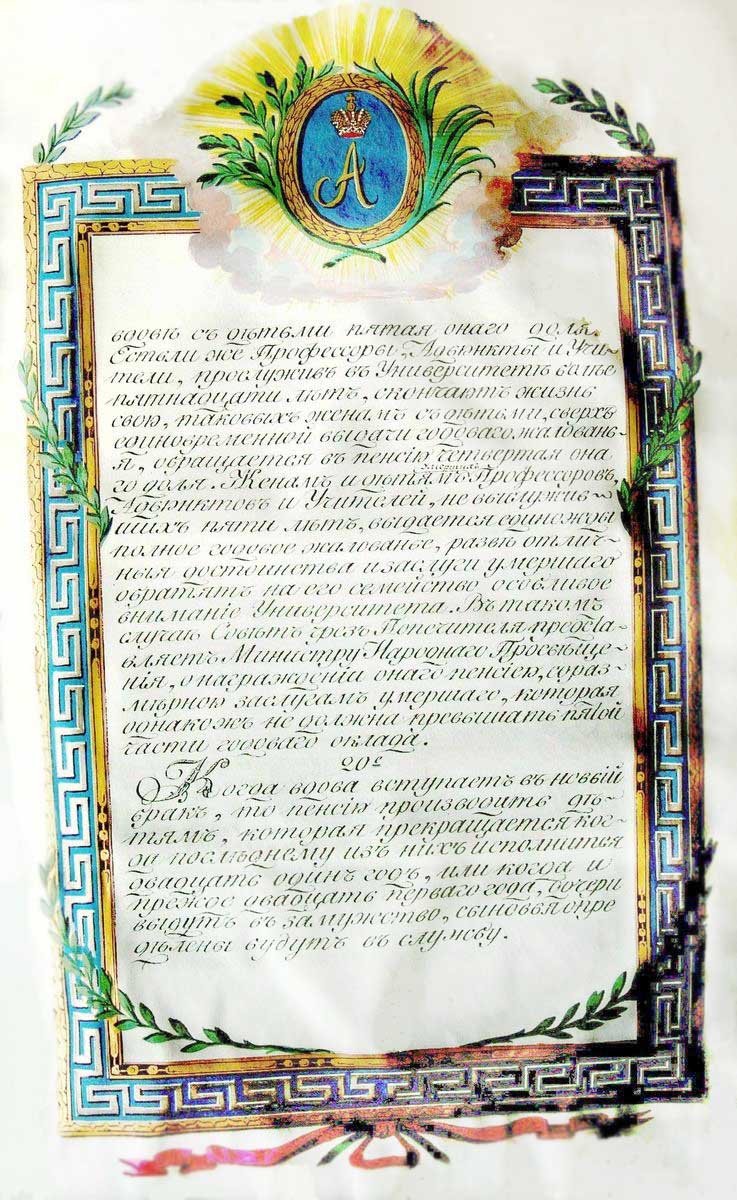 А
вдовѣ съ дѣтьми пятая онаго доля.
Естьли же Профессоры, Адъюнкты и Учи-
тели, прослуживъ въ Университетѣ болѣе
пятнадцати лѣтъ, скончаютъ жизнь
свою, таковыхъ женамъ съ дѣтьми, сверхъ
единовременной выдачи годоваго жалованъ-
я, обращается въ пенсію четвертая она
умершихъ
го доля. Женамъ и дѣтямъ Профессоровъ,
Адъюнктовъ и Учителей, не выслужив-
шихъ пяти лѣтъ, выдается единожды
полное годовое жалованье, развѣ отлич-
ныя достоинства и заслуги умершаго
обратятъ на его семейство особливое
вниманіе Университета. Въ такомъ
случаѣ Совѣтъ чрезъ Попечителя предста-
вляетъ Министру Народнаго Просвѣще-
нія, о награжденіи онаго пенсіею, сораз-
мѣрною заслугамъ умершаго, которая
однакожъ не должна превышать пятой
части годоваго оклада.
20е
Когда вдова вступаетъ въ новый
бракъ, то пенсію производить дѣ-
тямъ, которая прекращается ког-
да послѣднему изъ нихъ исполнится
двадцать одинъ годъ, или когда и
прежде двадцать перваго года, дочери
выдутъ въ замужство, сыновья опре
дѣлены будутъ въ службу.